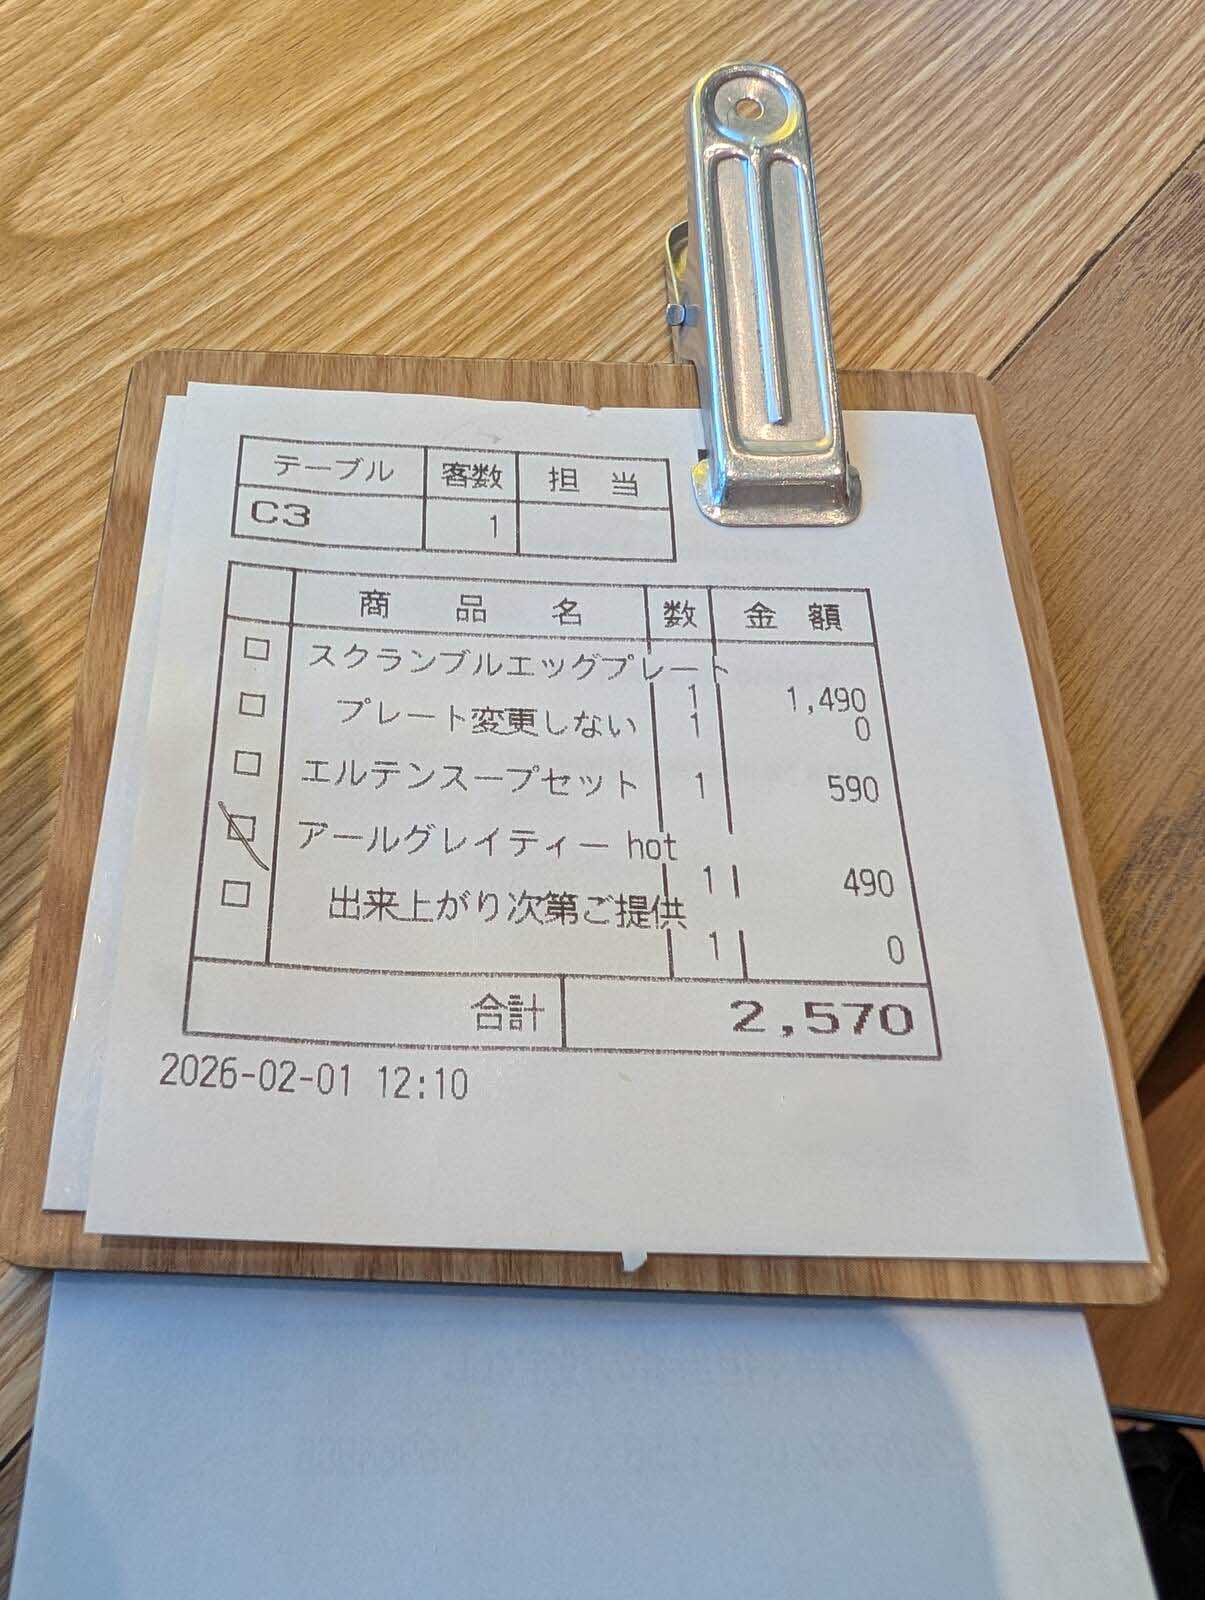 テーブル 客数 担当
C3 1
商品名 数 金額
スクランブルエッグプレート
1 1,490
プレート変更しない 1 0
エルテンスープセット 1 590
アールグレイティー hot
1 490
出来上がり次第ご提供
1 0
合計 2,570
2026-02-01 12:10